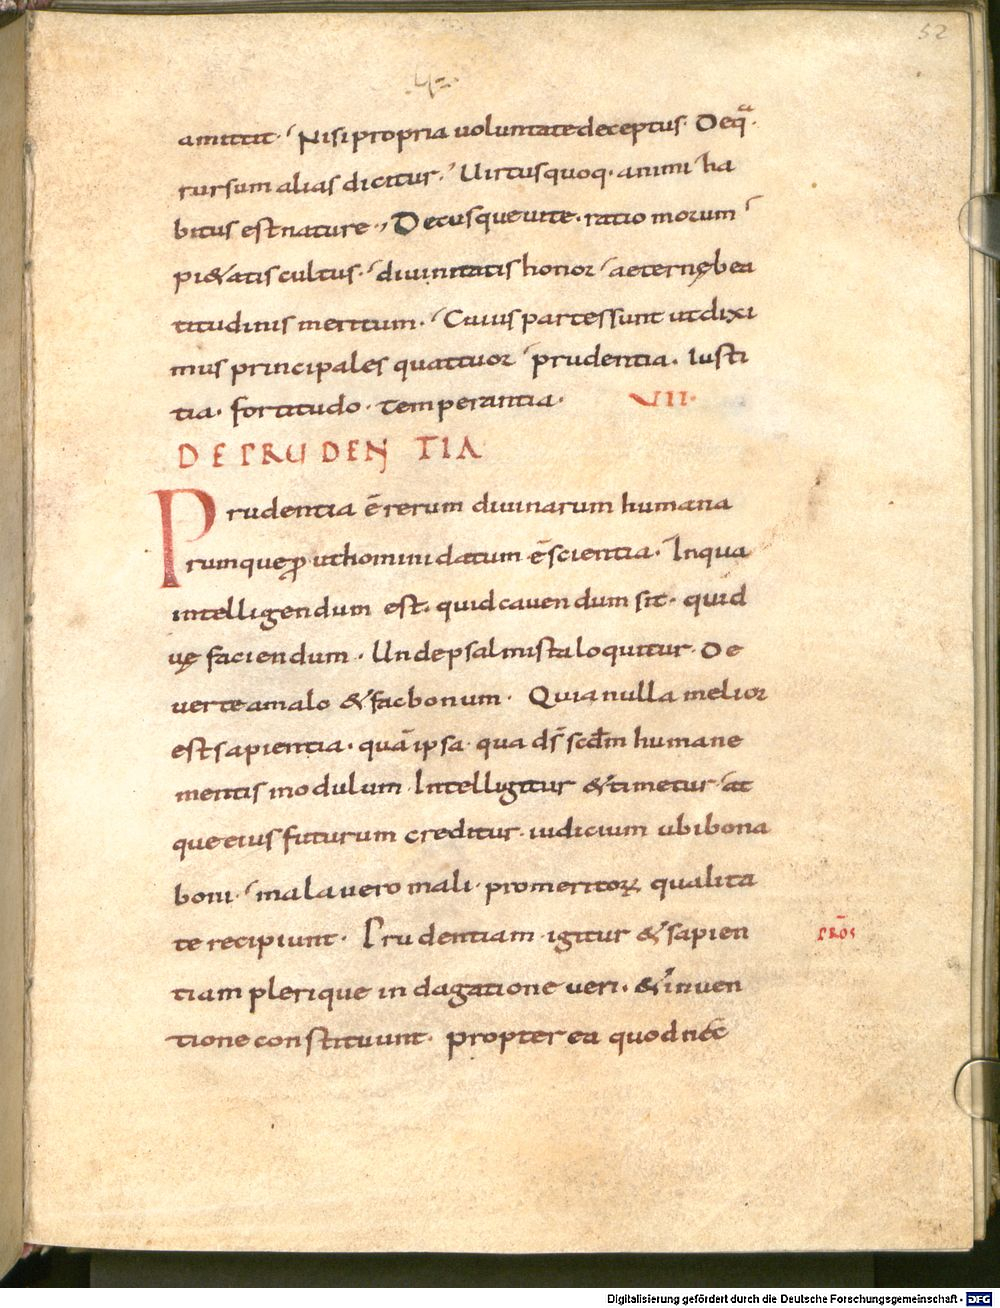 52
amittit· Nisi propria voluntate deceptus· De qͣ·
rursum alias dicitur· Uirtus quoq· animi ha
bitus est nature·, Decusque uite· ratio morum
pi&atis cultus· diuinitatis honor aeternę bea
titudinis meritum· Cuius partes sunt ut dixi
mus principales quattuor prudentia· Iusti
tia· fortitudo· temperantia· VII·
DE PRUDENTIA
Prudentia ē rerum diuinarum humana
rumque ꝓut homini datum ē scientia· In qua
intelligendum est· quid cauendum sit· quid
uę faciendum· Unde psalmista loquitur· De
uerte a malo & fac bonum· Quia nulla melior
est sapientia· quā ipsa· qua dꝰ scdm humane
mentis modulum· Intelligitur & timetur· at
que eius futurum creditur· iudicium ubi bona
boni· mala uero mali· pro meritoꝝ qualita
te recipiunt· Prudentiam igitur & sapien
PRŌS
tiam plerique in dagatione ueri· & inuen
tione constituunt· propter ea quod nec
Digitalisierung gefördert durch die Deutsche Forschungsgemeinschaft - DFG